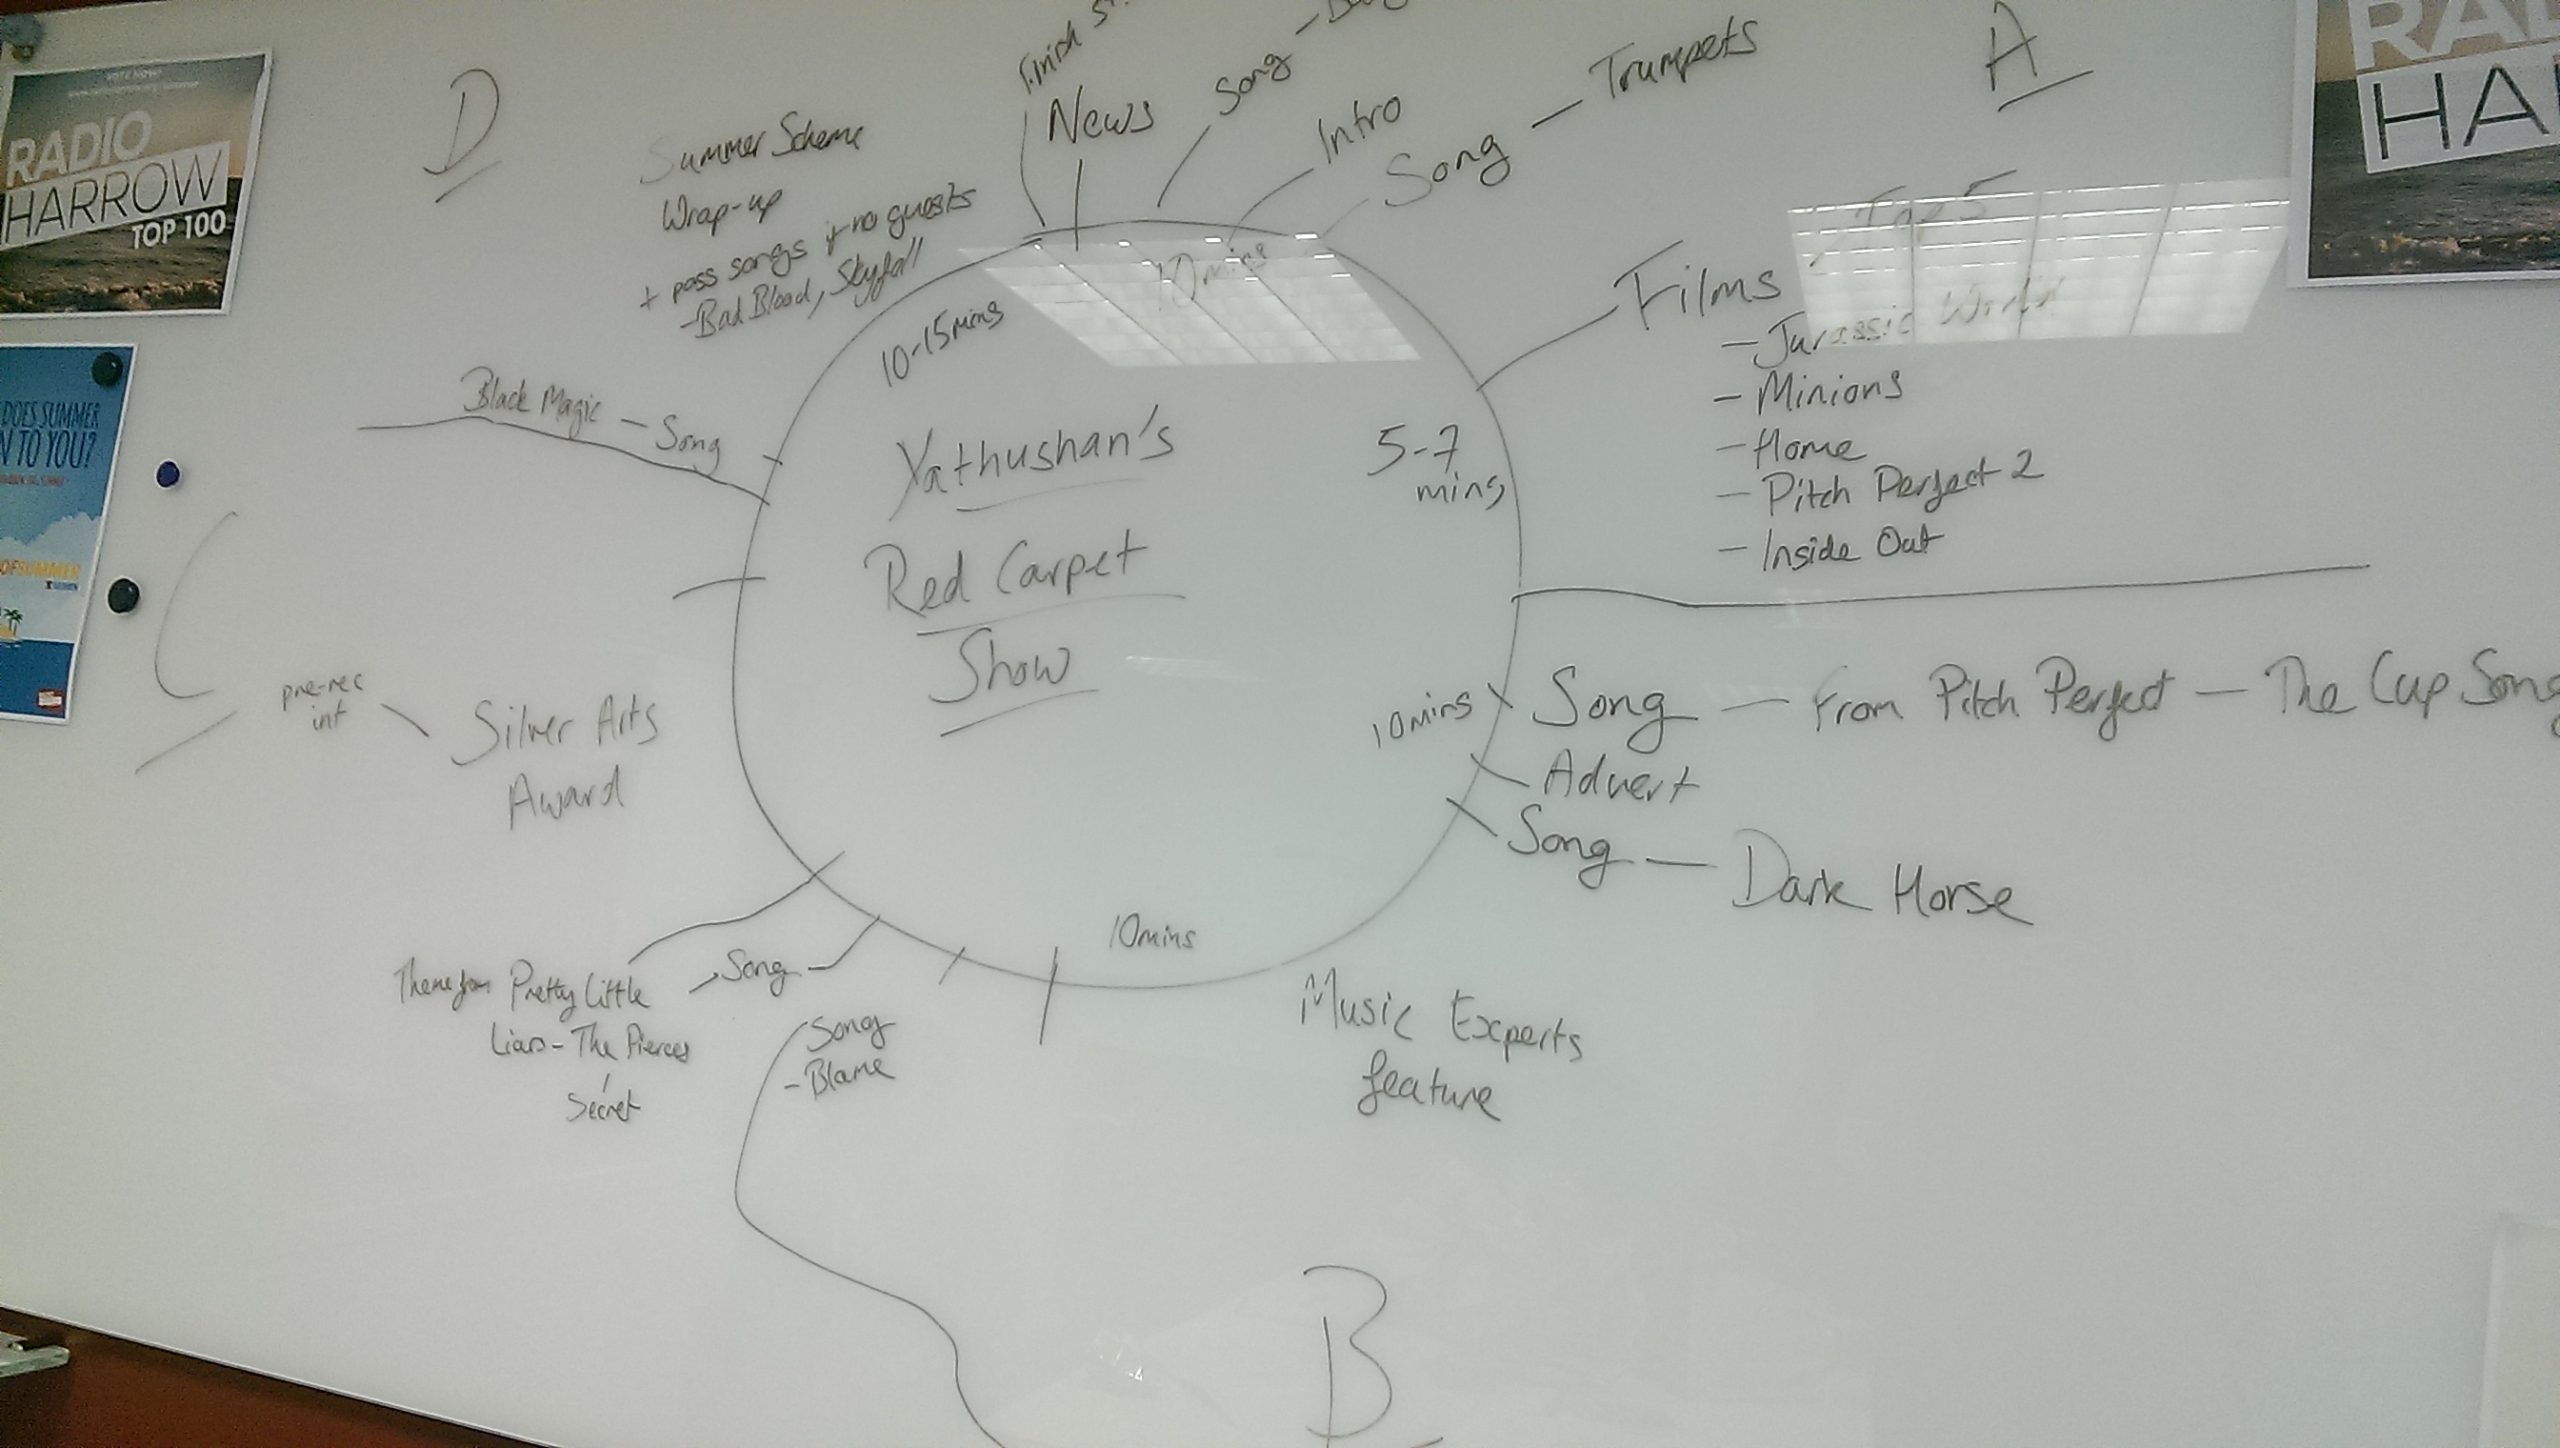 VOTE NOW!
RADIO
HARROW
TOP 100
DOES SUMMER
N TO YOU?
OF SUMMER
D
Summer Scheme
Wrap-up
+ pass songs if no guests
- Bad Blood, Skyfall
Finish
News
Song -
Intro
Song - Trumpets
A
RAD
HA
10 mins
10-15 mins
Films - Top 5
- Jurassic World
- Minions
- Home
- Pitch Perfect 2
- Inside Out
5-7
mins
Black Magic - Song
Yathushan's
Red Carpet
Show
C
pre-rec
int
Silver Arts
Award
10 mins
Song - From Pitch Perfect - The Cup Song
Advert
Song - Dark Horse
10 mins
Music Experts
feature
Theme from Pretty Little
Liars - The Pierces
Secret
Song
Song
- Blame
B